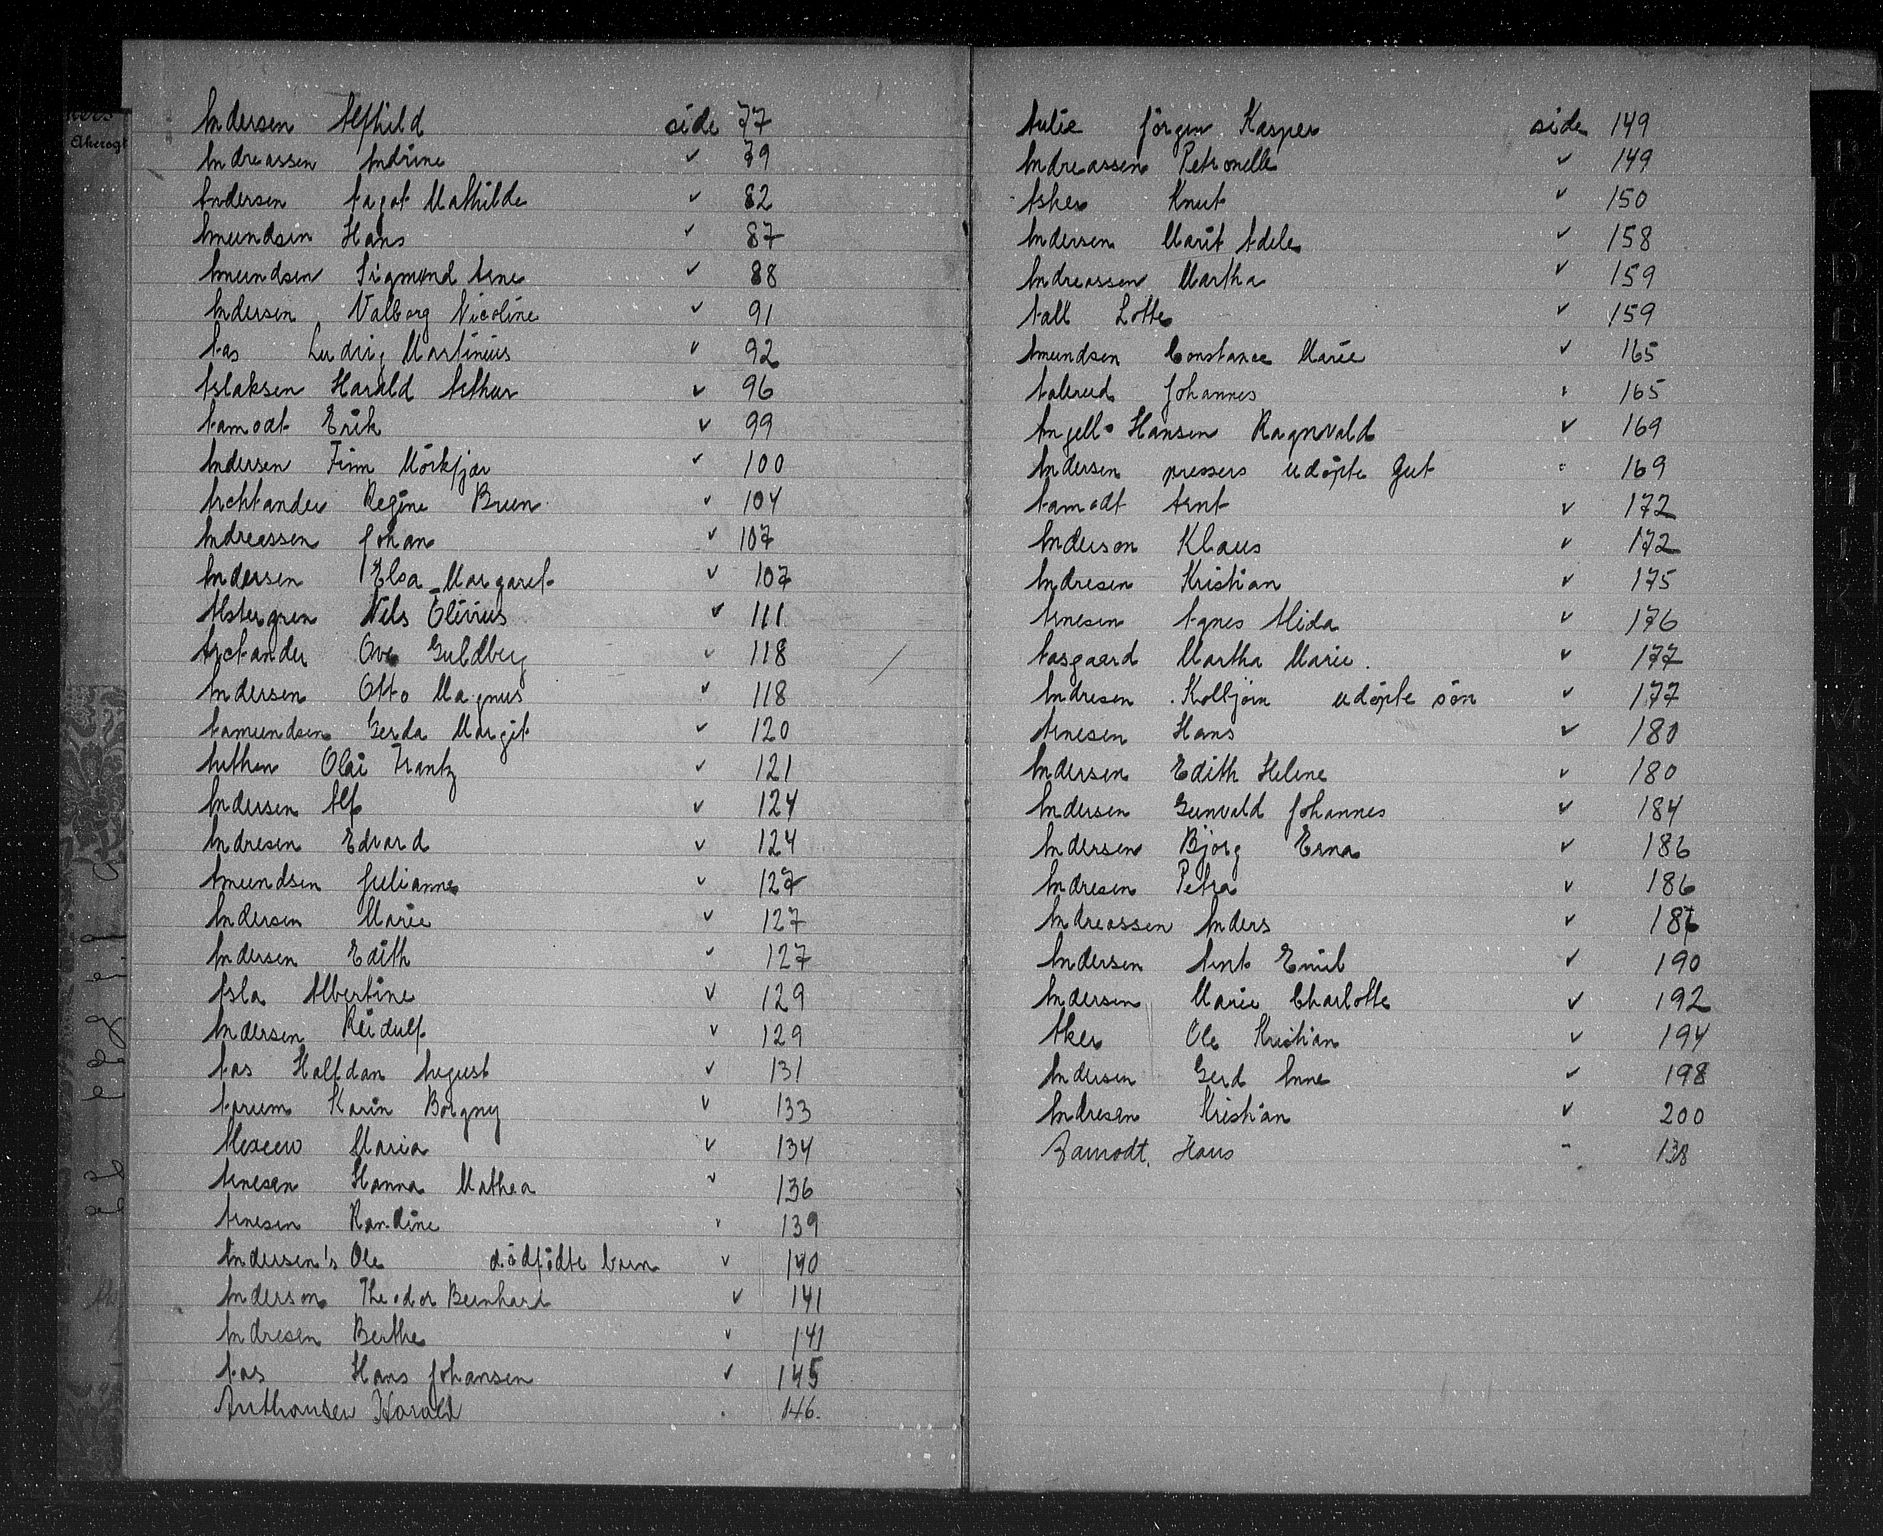 Andersen Alfhild side 77
Andreassen Andrine v 79
Andersen Aagot Mathilde v 82
Amundsen Hans v 87
Amundsen Sigmund Arne v 88
Andersen Valborg Nicoline v 91
Aas Ludvig Martinius v 92
Aslaksen Harald Arthur v 96
Aamodt Erik v 99
Andersen Finn Mörkfjar v 100
Archtander Regine Bruun v 104
Andreassen Johan v 107
Andersen Elsa Margaret v 107
Alstergren Nils Olivius v 111
Arctander Ove Guldberg v 118
Andersen Otto Magnus v 118
Aamundsen Gerda Margit v 120
Authen Olai Frantz v 121
Andersen Alf v 124
Andresen Edvard v 124
Amundsen Julianne v 127
Andersen Marie v 127
Andersen Edith v 127
Asla Albertine v 129
Andersen Reidulf v 129
Aas Halfdan August v 131
Aarum Karin Borgny v 133
Alexeew Maria v 134
Arnesen Hanna Mathea v 136
Arnesen Randine v 139
Andersen's Ole dödfödte barn v 140
Anderson Theodor Bernhard v 141
Andresen Berthe v 141
Aas Hans Johansen v 145
Anthonsen Harald 146.
Aulie Jörgen Kasper side 149
Andreassen Petronelle v 149
Asker Knut v 150
Andersen Marit Adele v 158
Andreassen Martha v 159
Aall Lotte v 159
Amundsen Constance Marie v 165
Aallerud Johannes 165
Angell-Hansen Ragnvald v 169
Andersen pressers udöpte gut 169
Aamodt Arnt v 172
Anderson Klaus v 172
Andresen Kristian v 175
Arnesen Agnes Alida v 176
Aasgaard Martha Marie. v 177
Andresen Kolbjörn udöpte sön v 177
Arnesen Hans v 180
Andersen Edith Helene v 180
Andersen Gunvald Johannes v 184
Andersen Bjorg Erna v 186
Andresen Petra v 186
Andreassen Anders v
Andersen Arnt Emil v 190
Andersen Marie Charlotte v 192
Aker Ole Kristian v 194
Andersen Gerd Anne v 198
Andresen Kristian v 200
Aamodt. Hans - 138